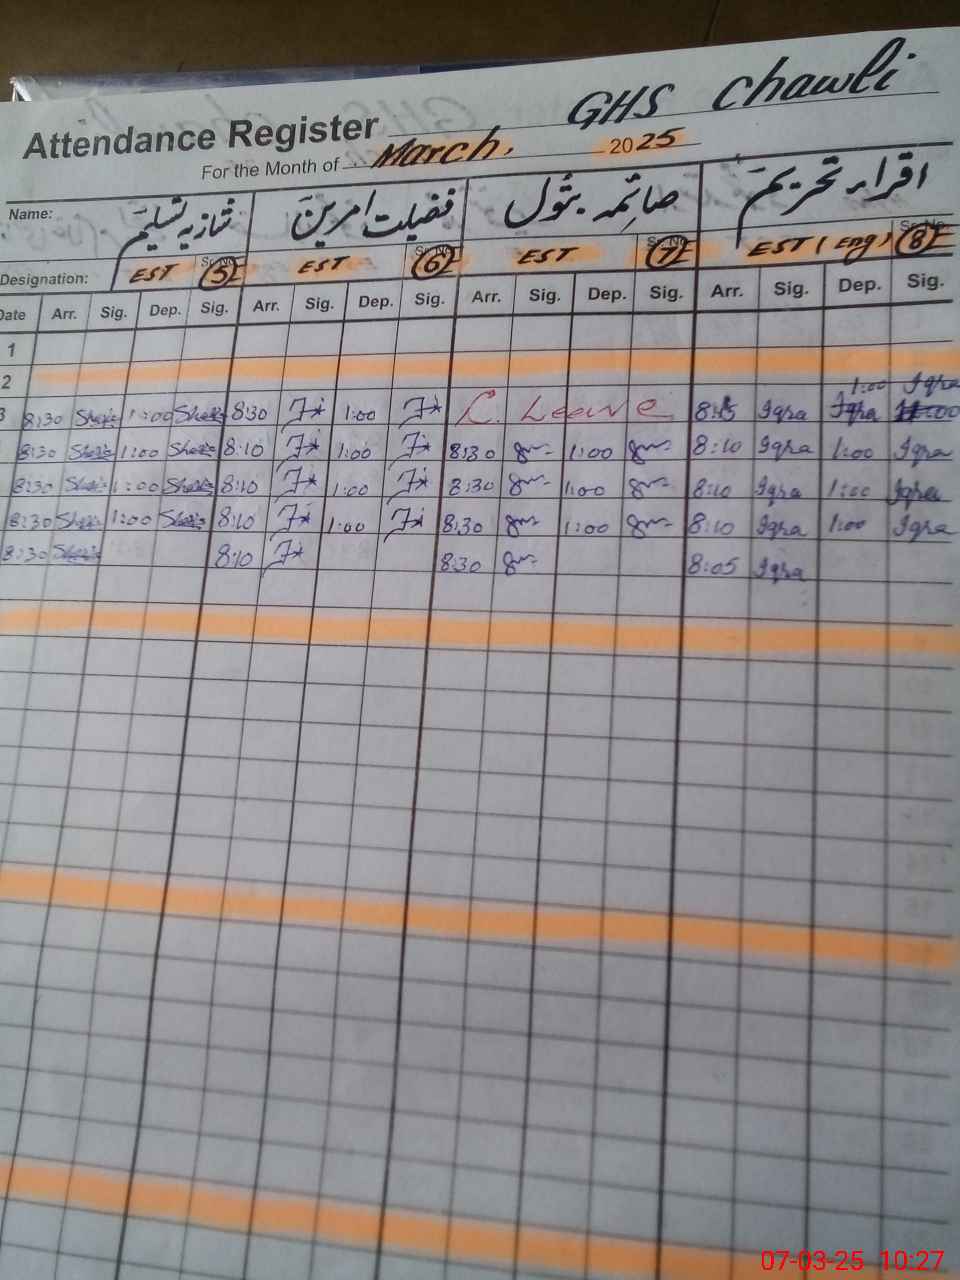 GHS Chawli
Attendance Register
For the Month of March, 2025
Name: شازیہ تسلیم فضیلت امرین صائمہ بتول اقراء تحریم
Designation: EST Sr. No. 5 EST 6 EST Sr. No. 7 EST (Eng) Sr. No. 8
Date Arr. Sig. Dep. Sig. Arr. Sig. Dep. Sig. Arr. Sig. Dep. Sig. Arr. Sig. Dep. Sig.
1
2
1:00 Iqra
3 8:30 1:00 8:30 1:00 C. Leave Iqra Iqra
8:30 1:00 8:10 1:00 8:30 1:00 8:10 Iqra 1:00 Iqra
8:30 1:00 8:10 1:00 8:30 1:00 8:10 Iqra 1:00 Iqra
8:30 1:00 8:10 1:00 8:30 1:00 8:10 Iqra 1:00 Iqra
8:30 8:10 8:30 8:05 Iqra
07-03-25 10:27